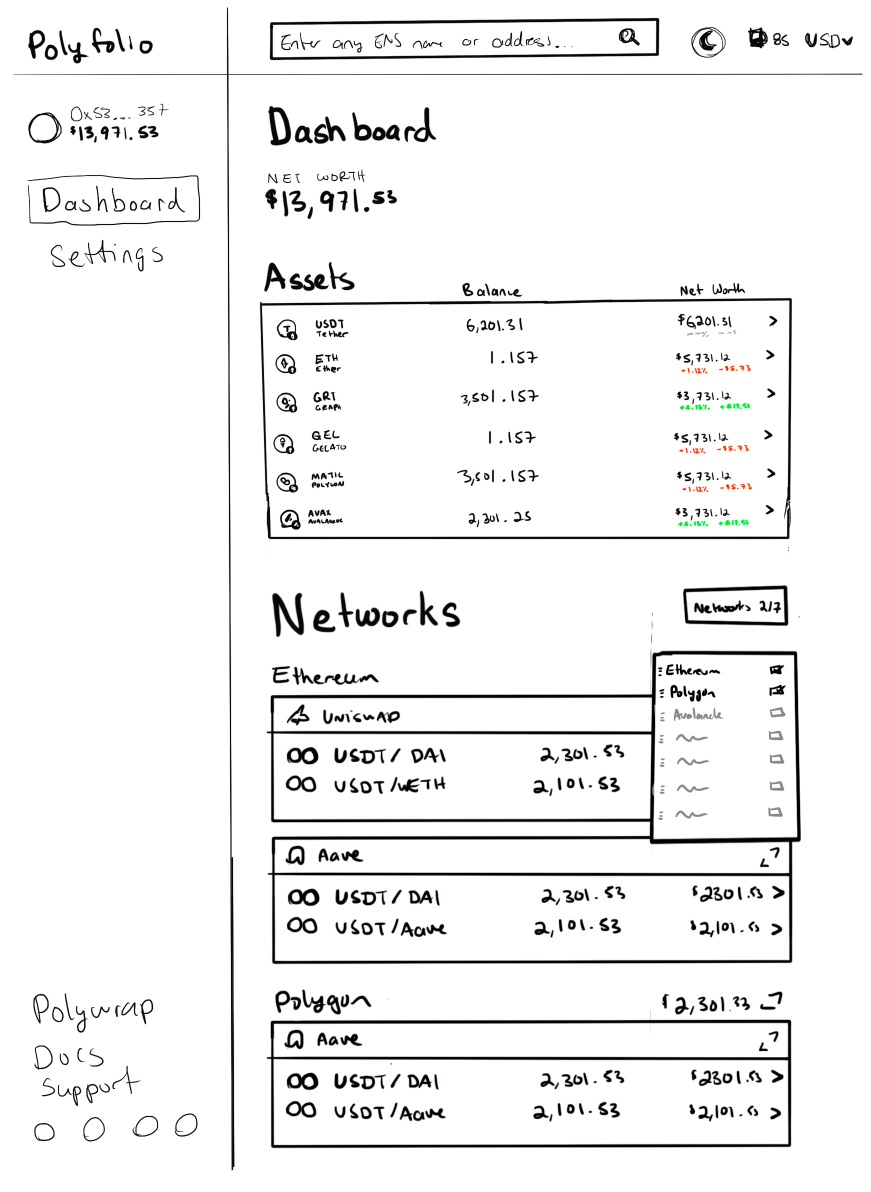 Polyfolio
Enter any ENS name or address...
85 USD
0x53... 357
$13,971.53
Dashboard
Settings
Dashboard
NET WORTH
$13,971.53
Assets
Balance Net Worth
USDT 6,201.31 $6,201.31 >
Tether --% --$
ETH 1.157 $5,731.12 >
Ether -1.12% -$5.73
GRT 3,501.157 $3,731.12 >
GRAPH +2.15% +$17.53
GEL 1.157 $5,731.12 >
GELATO -1.12% -$5.73
MATIL 3,501.157 $5,731.12 >
POLYGON -1.12% -$5.73
AVAX 2,301.25 $3,731.12 >
AVALANCHE +2.15% +$17.53
Networks
Networks 2/7
Ethereum
Polygon
Avalanche
Ethereum
UNISWAP
USDT/DAI 2,301.53
USDT/WETH 2,101.53
Aave
USDT/DAI 2,301.53 $2301.53 >
USDT/Aave 2,101.53 $2,101.53 >
Polygon $2,301.33
Aave
USDT/DAI 2,301.53 $2301.53 >
USDT/Aave 2,101.53 $2,101.53 >
Polywrap
Docs
Support